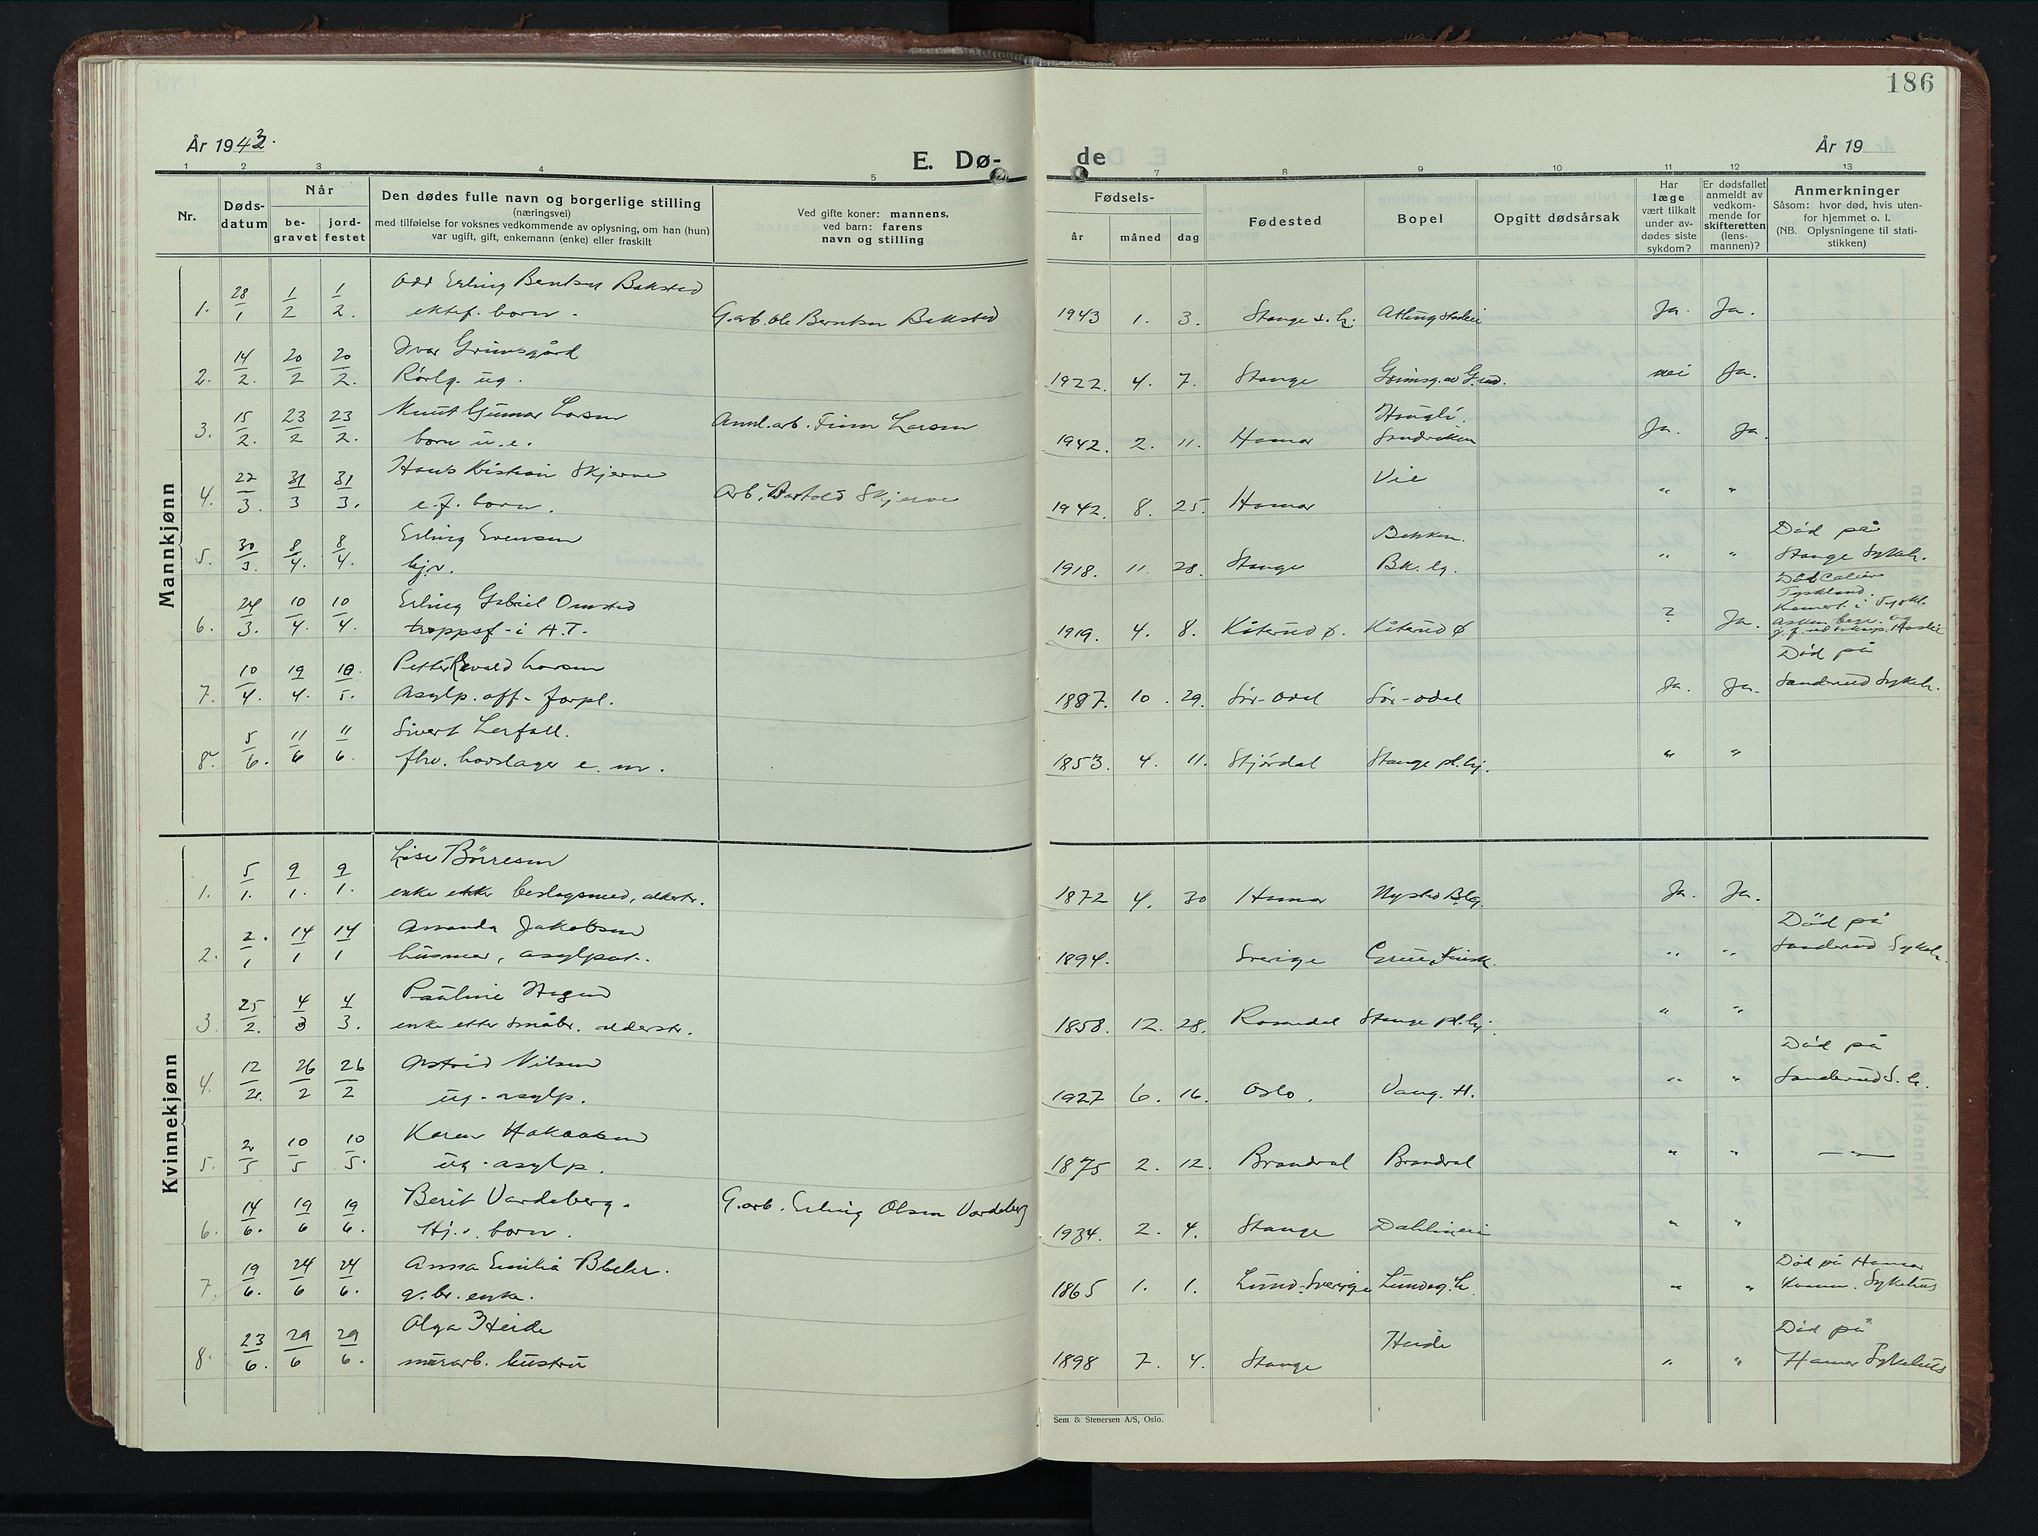 186
År 1943.
E. Dø-
de
År 19
1 2 3 4 5 7 8 9 10 11 12 13
Nr.
Døds-
datum
Når
be-
gravet
jord-
festet
Den dødes fulle navn og borgerlige stilling
(næringsvei)
med tilføielse for voksnes vedkommende av oplysning, om han (hun)
var ugift, gift, enkemann (enke) eller fraskilt
Ved gifte koner: mannens,
ved barn: farens
navn og stilling
Fødsels-
år
måned
dag
Fødested
Bopel
Opgitt dødsårsak
Har
læge
vært tilkalt
under av-
dødes siste
sykdom?
Er dødsfallet
anmeldt av
vedkom-
mende for
skifteretten
(lens-
mannen)?
Anmerkninger
Såsom: hvor død, hvis uten-
for hjemmet o. l.
(NB. Oplysningene til stati-
stikken)
Mannkjønn
1. 28/1 1/2 1/2. Odd Erling Berntsen Bakstad
ektef. barn. G.arb. Ole Berntsen Bakstad 1943 1. 3. Stange s.h. Ja. Ja.
2. 14/2. 20/2 20/2. Ivar Grimsgård
Rørlg. ug. 1922. 4. 7. Stange nei Ja.
3. 15/2. 23/2 23/2. Knut Gunnar Larsen
barn u.e. Annl.arb. Finn Larsen 1942. 2. 11. Hamar Haugli
Sandviken Ja. Ja.
4. 22/3. 31/3 31/3. Hans Kristian Skjerve
e.f. barn. Arb. Bertold Skjerve 1942. 8. 25. Hamar Vie " "
5. 30/3. 8/4. 8/4. Erling Evensen
hjv. 1918. 11. 28. Stange Bekken.
Bk. lg. " " Død på
Stange Sykeh.
6. 24/3. 10/4. 10/4. Erling Gabriel Omsted
troppsf. i A.T. 1919. 4. 8. Kåterud ø. Kåterud ø ? Ja.
Tyskland.
7. 10/4. 19/4. 10/5. Petter Revald Larsen
Asylp. off. forpl. 1887. 10. 29. Sør-Odal Sør-Odal Ja. Ja. Død på
Sanderud Sykeh.
8. 5/6. 11/6 11/6. Sivert Lerfall.
fhv. hovslager e.m. 1853. 4. 11. Stjørdal Stange pl.hj. " "
Kvinnekjønn
1. 5/1. 9/1. 9/1. Lise Børresen
enke etter beslagsmed, alderstr. 1872 4. 30 Hamar Ja. Ja.
2. 2/1 14/1 14/1 Amanda Jakobsen
husmor, asylpat. 1894. Sverige Grue, Finsk. " " Død på
Sanderud Sykeh.
3. 25/2. 4/3 4/3. Pauline
enke etter småbr. alderstr. 1858. 12. 28. Romedal Stange pl.hj. " "
4. 12/2. 26/2 26/2 Astrid Nilsen
ug. asylp. 1927 6. 16. Oslo. Vang. H. " " Død på
Sanderud S.h.
5. 2/5 10/5 10/5. Karen Hakonsen
ug. asylp. 1875 2. 12. Brandval Brandval " " — " —
6. 14/6. 19/6 19/6. Berit Vardeberg.
Hj.v. barn. G.arb. Erling Olsen Vardeberg 1934. 2. 4. Stange " "
7. 19/6. 24/6 24/6. Anna Emilia
g.br. enke. 1865 1. 1. Lund-Sverige " " Død på Hamar
komm. Sykehus
8. 23/6. 29/6 29/6. Olga Heide
murarb. hustru 1898 7. 4. Stange Heide " " Død på
Hamar Sykehus
Sem & Stenersen A/S, Oslo.